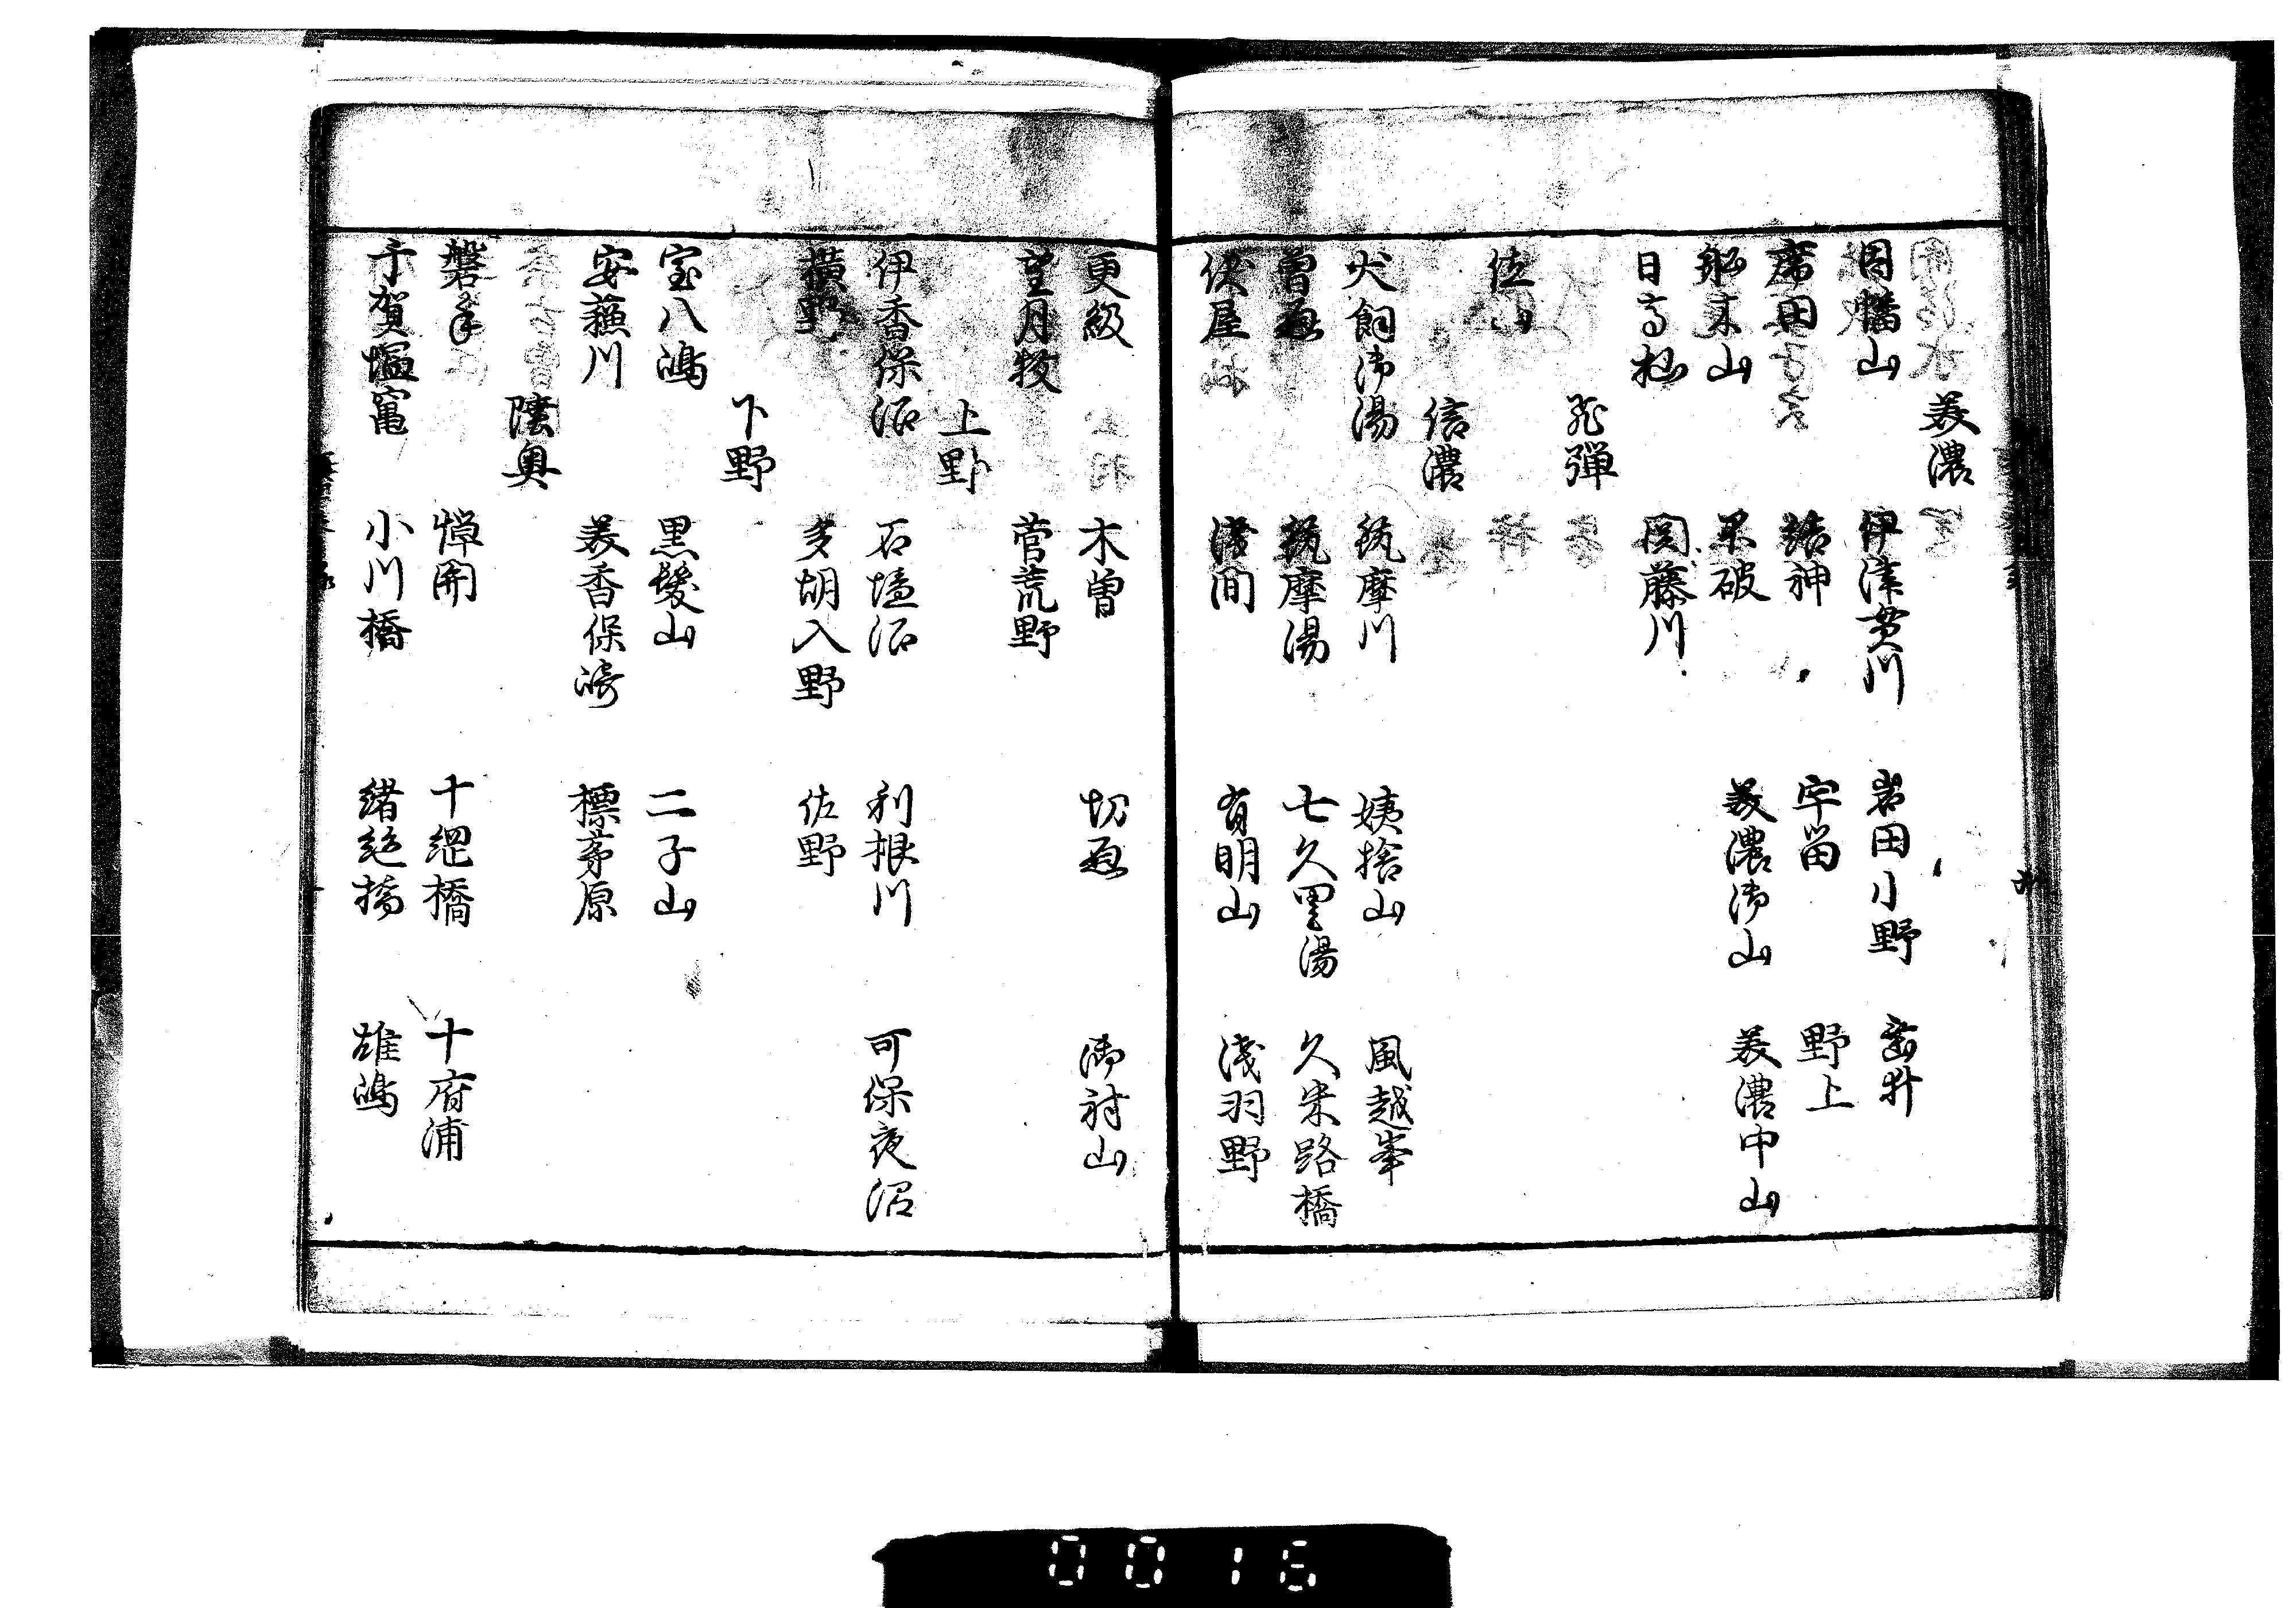 美濃
因幡山 伊津貫川 岩田小野
席田 結神 野上
船木山 不破 美濃御山 美濃中山
日高杣 関藤川
飛弾
位山
信濃
犬飼御湯 筑摩川 姨捨山 風越峯
曽原 筑摩湯 七久里湯 久米路橋
伏屋 浅間 有明山 浅羽野
更級 木曽 切原 御射山
望月牧 菅荒野
上野
伊香保沼 石垣沼 利根川 可保夜沼
横野 多胡入野 佐野
下野
室八嶋 黒髪山 二子山
安蘓川 美香保崎 標茅原
陸奥
磐手 憚関 十綱橋 十府浦
千賀塩竃 小川橋 緒絶橋 雄嶋
0016